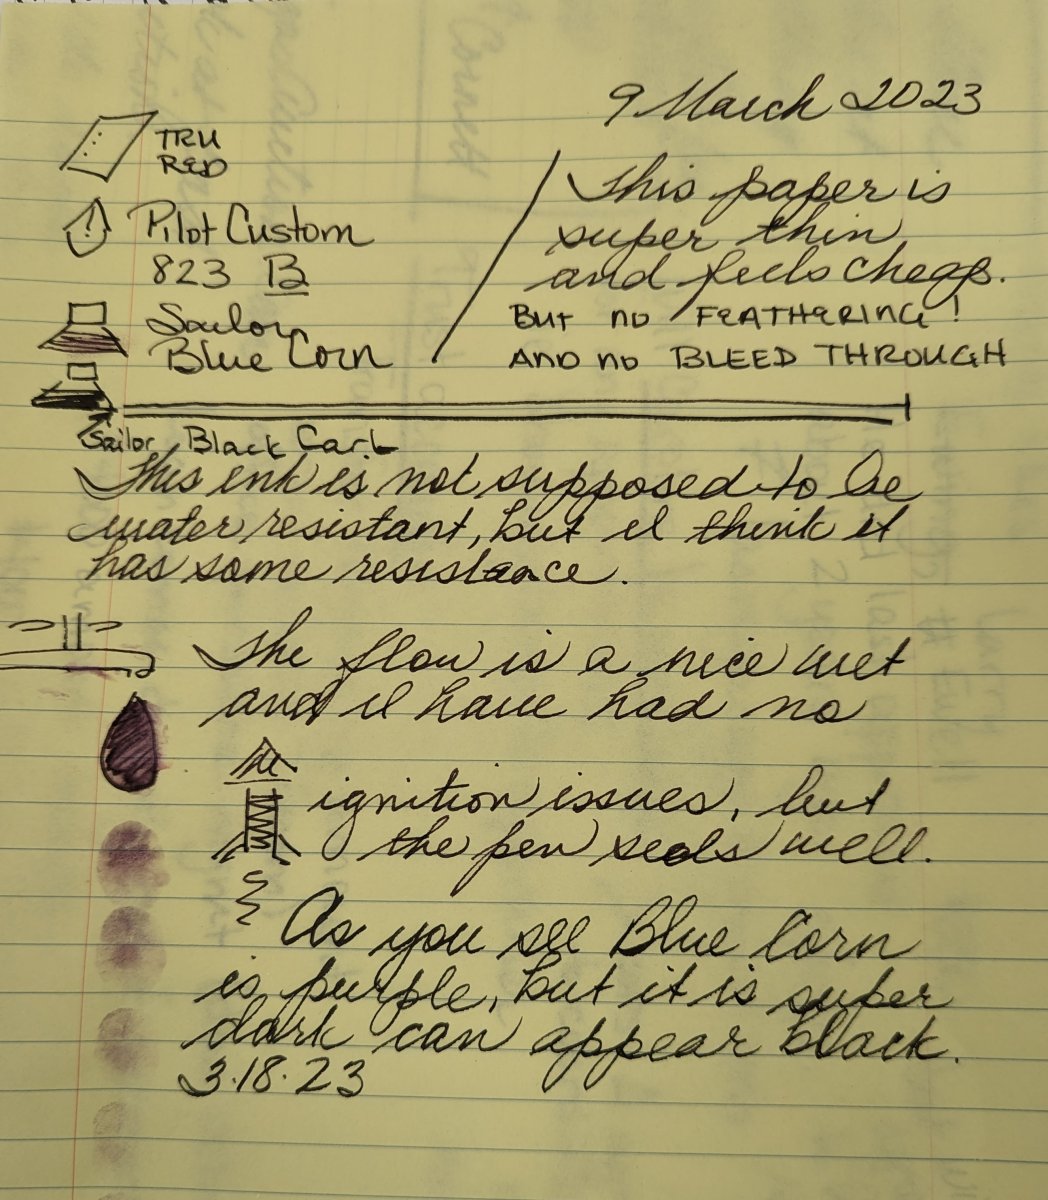 9 March 2023
TRU
RED
Pilot Custom
823 B
Sailor
Blue Corn
This paper is
super thin
and feels cheap.
BUT no FEATHERING!
AND no BLEED THROUGH
Sailor Black Cart.
This ink is not supposed to be
water resistant, but I think it
has some resistance.
The flow is a nice wet
and I have had no
ignition issues, but
the pen seals well.
As you see Blue Corn
is purple, but it is super
dark can appear black.
3.18.23